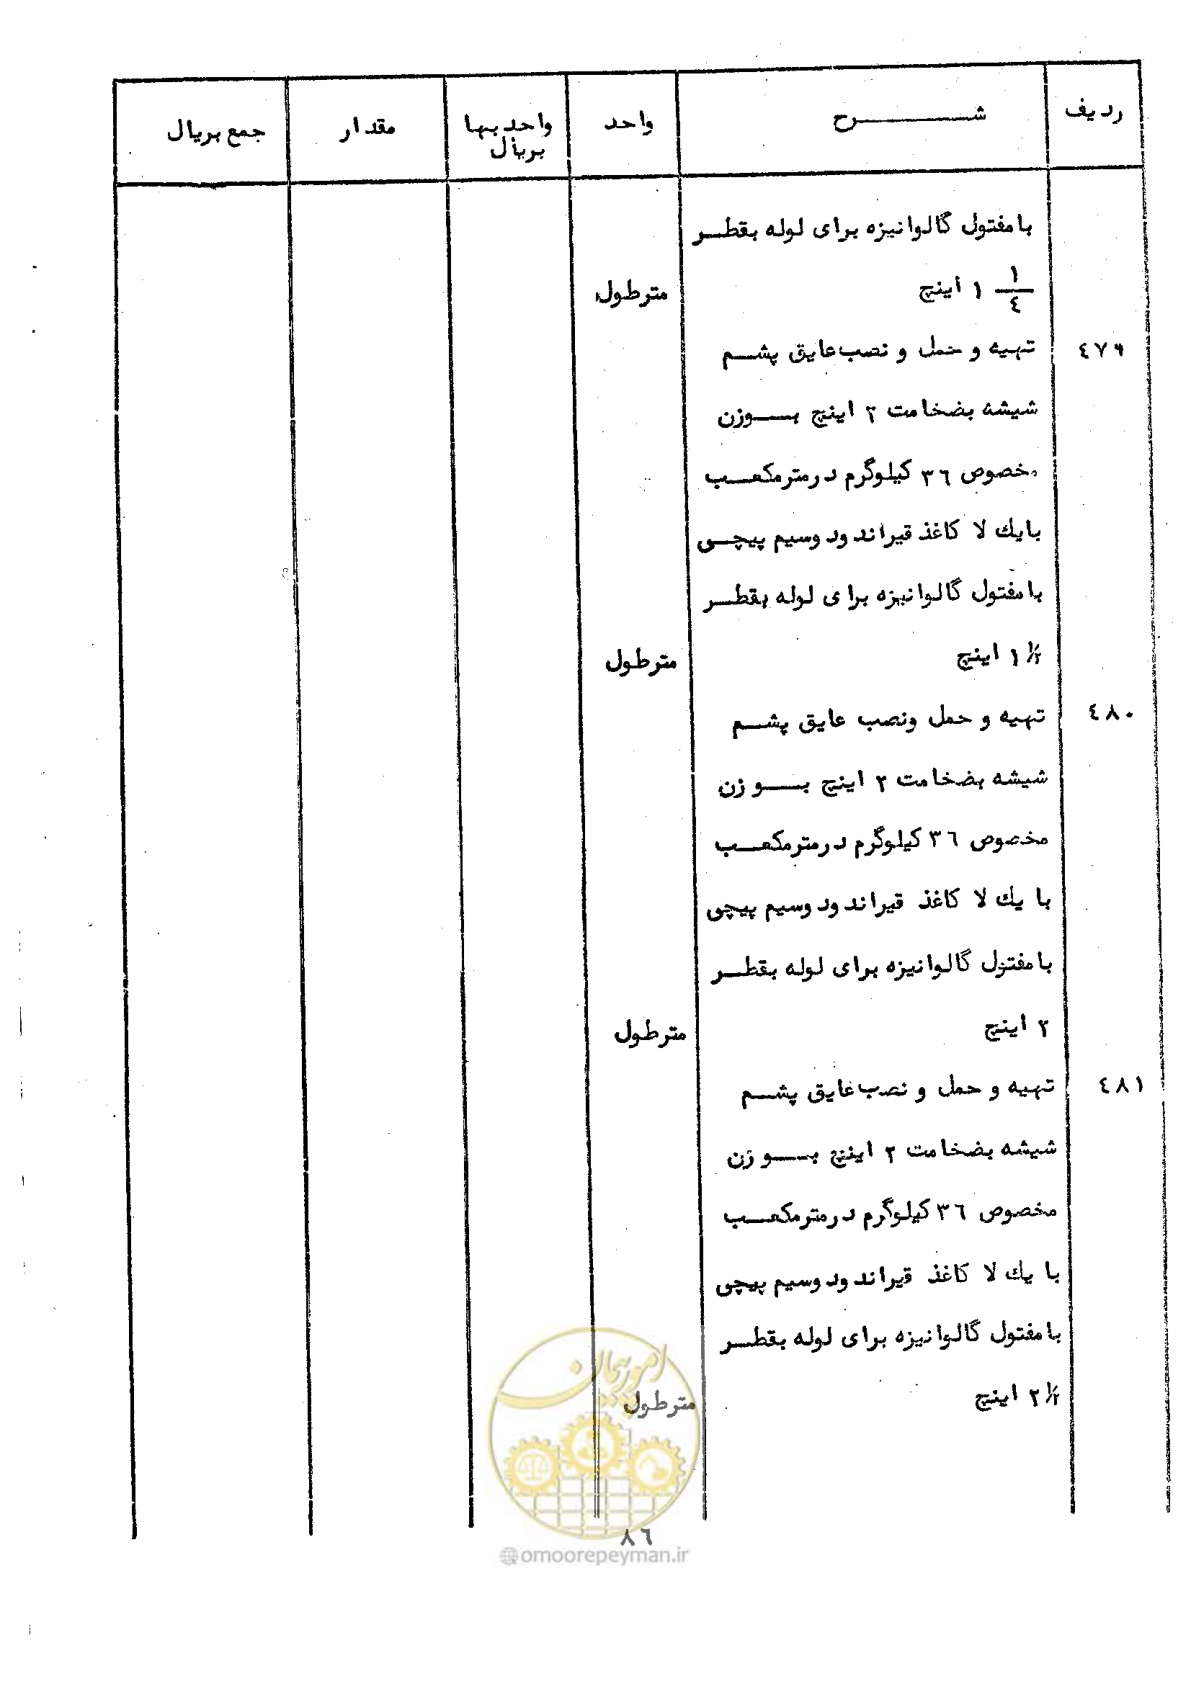 ردیف شـــــرح واحد واحد بها بریال مقدار جمع بریال
با مفتول گالوانیزه برای لوله بقطـر
۱ ۱/٤ اینچ مترطول
٤۷۹ تهیه و حمل و نصب عایق پشـم
شیشه بضخامت ۲ اینچ بـــوزن
مخصوص ۳٦ کیلوگرم در مترمکعـب
با یك لا کاغذ قیراندود و سیم پیچـی
با مفتول گالوانیزه برای لوله بقطـر
۱ ۱/۲ اینچ مترطول
٤۸۰ تهیه و حمل و نصب عایق پشـم
شیشه بضخامت ۲ اینچ بـــوزن
مخصوص ۳٦ کیلوگرم در مترمکعـب
با یك لا کاغذ قیراندود و سیم پیچی
با مفتول گالوانیزه برای لوله بقطـر
۲ اینچ مترطول
٤۸۱ تهیه و حمل و نصب عایق پشـم
شیشه بضخامت ۲ اینچ بـــوزن
مخصوص ۳٦ کیلوگرم در مترمکعـب
با یك لا کاغذ قیراندود و سیم پیچی
با مفتول گالوانیزه برای لوله بقطـر
۲ ۱/۲ اینچ مترطول
امور پیمان
۸٦
@omoorepeyman.ir